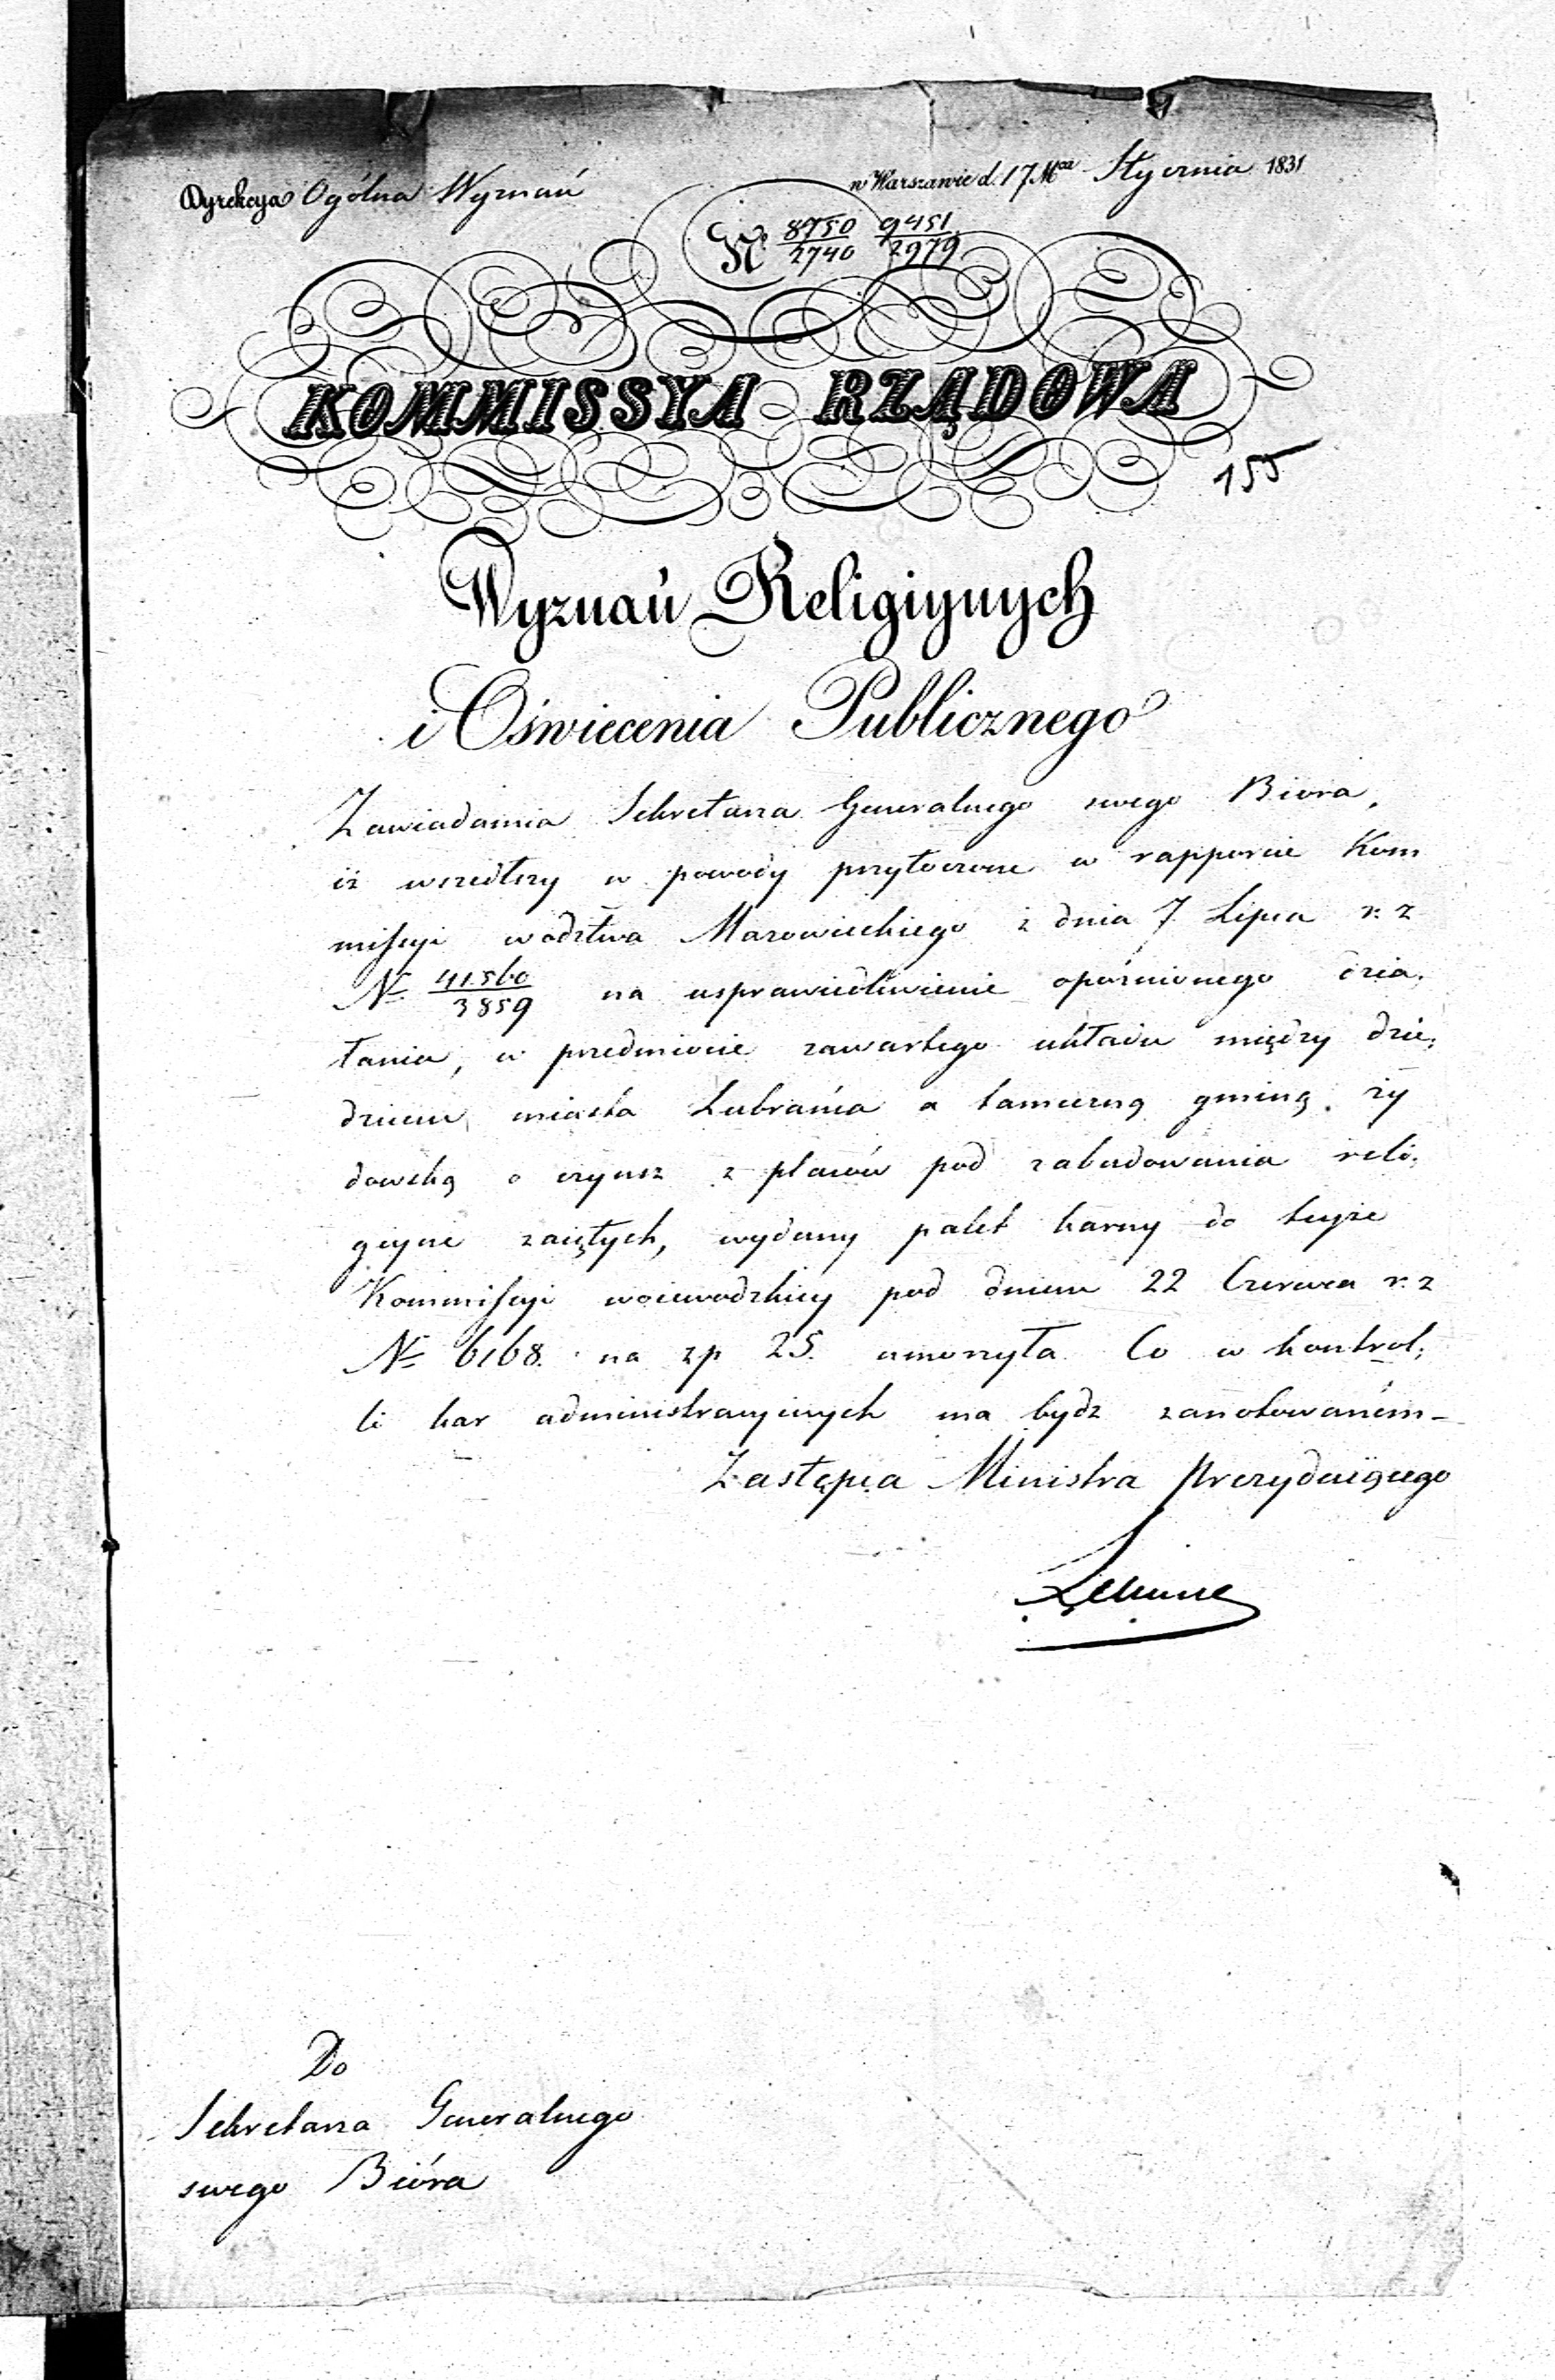 Dyrekcya Ogólna Wyznań
w Warszawie d. 17 Mca Stycznia 1831
N. 8750/2740 9451/2979
KOMMISSYA RZĄDOWA
155
Wyznań Religiynych
i Oświecenia Publicznego
Zawiadamia Sekretarza Generalnego swego Biora,
iż wszedłszy w powody przytoczone w rapporcie Kom
missyi wodztwa Mazowieckiego z dnia 7 Lipca r. z
N. 41560/3859 na usprawiedliwienie opóźnionego dzia,
łania, w przedmiocie zawartego układu między dzie,
dzicem miasta Lubrańca a tamieczną gminą ży
dowską o czynsz z placów pod zabudowania reli,
giyne zaiętych, wydany palet karny do teyże
Kommissyi woiewodzkiey pod dniem 22 Czerwca r. z
N. 6168. na zp 25. umorzyła. Co w kontrol,
li kar administracyinych ma bydz zanotowaném -
Zastępca Ministra Prezyduiącego
Do
Sekretarza Generalnego
swego Bióra